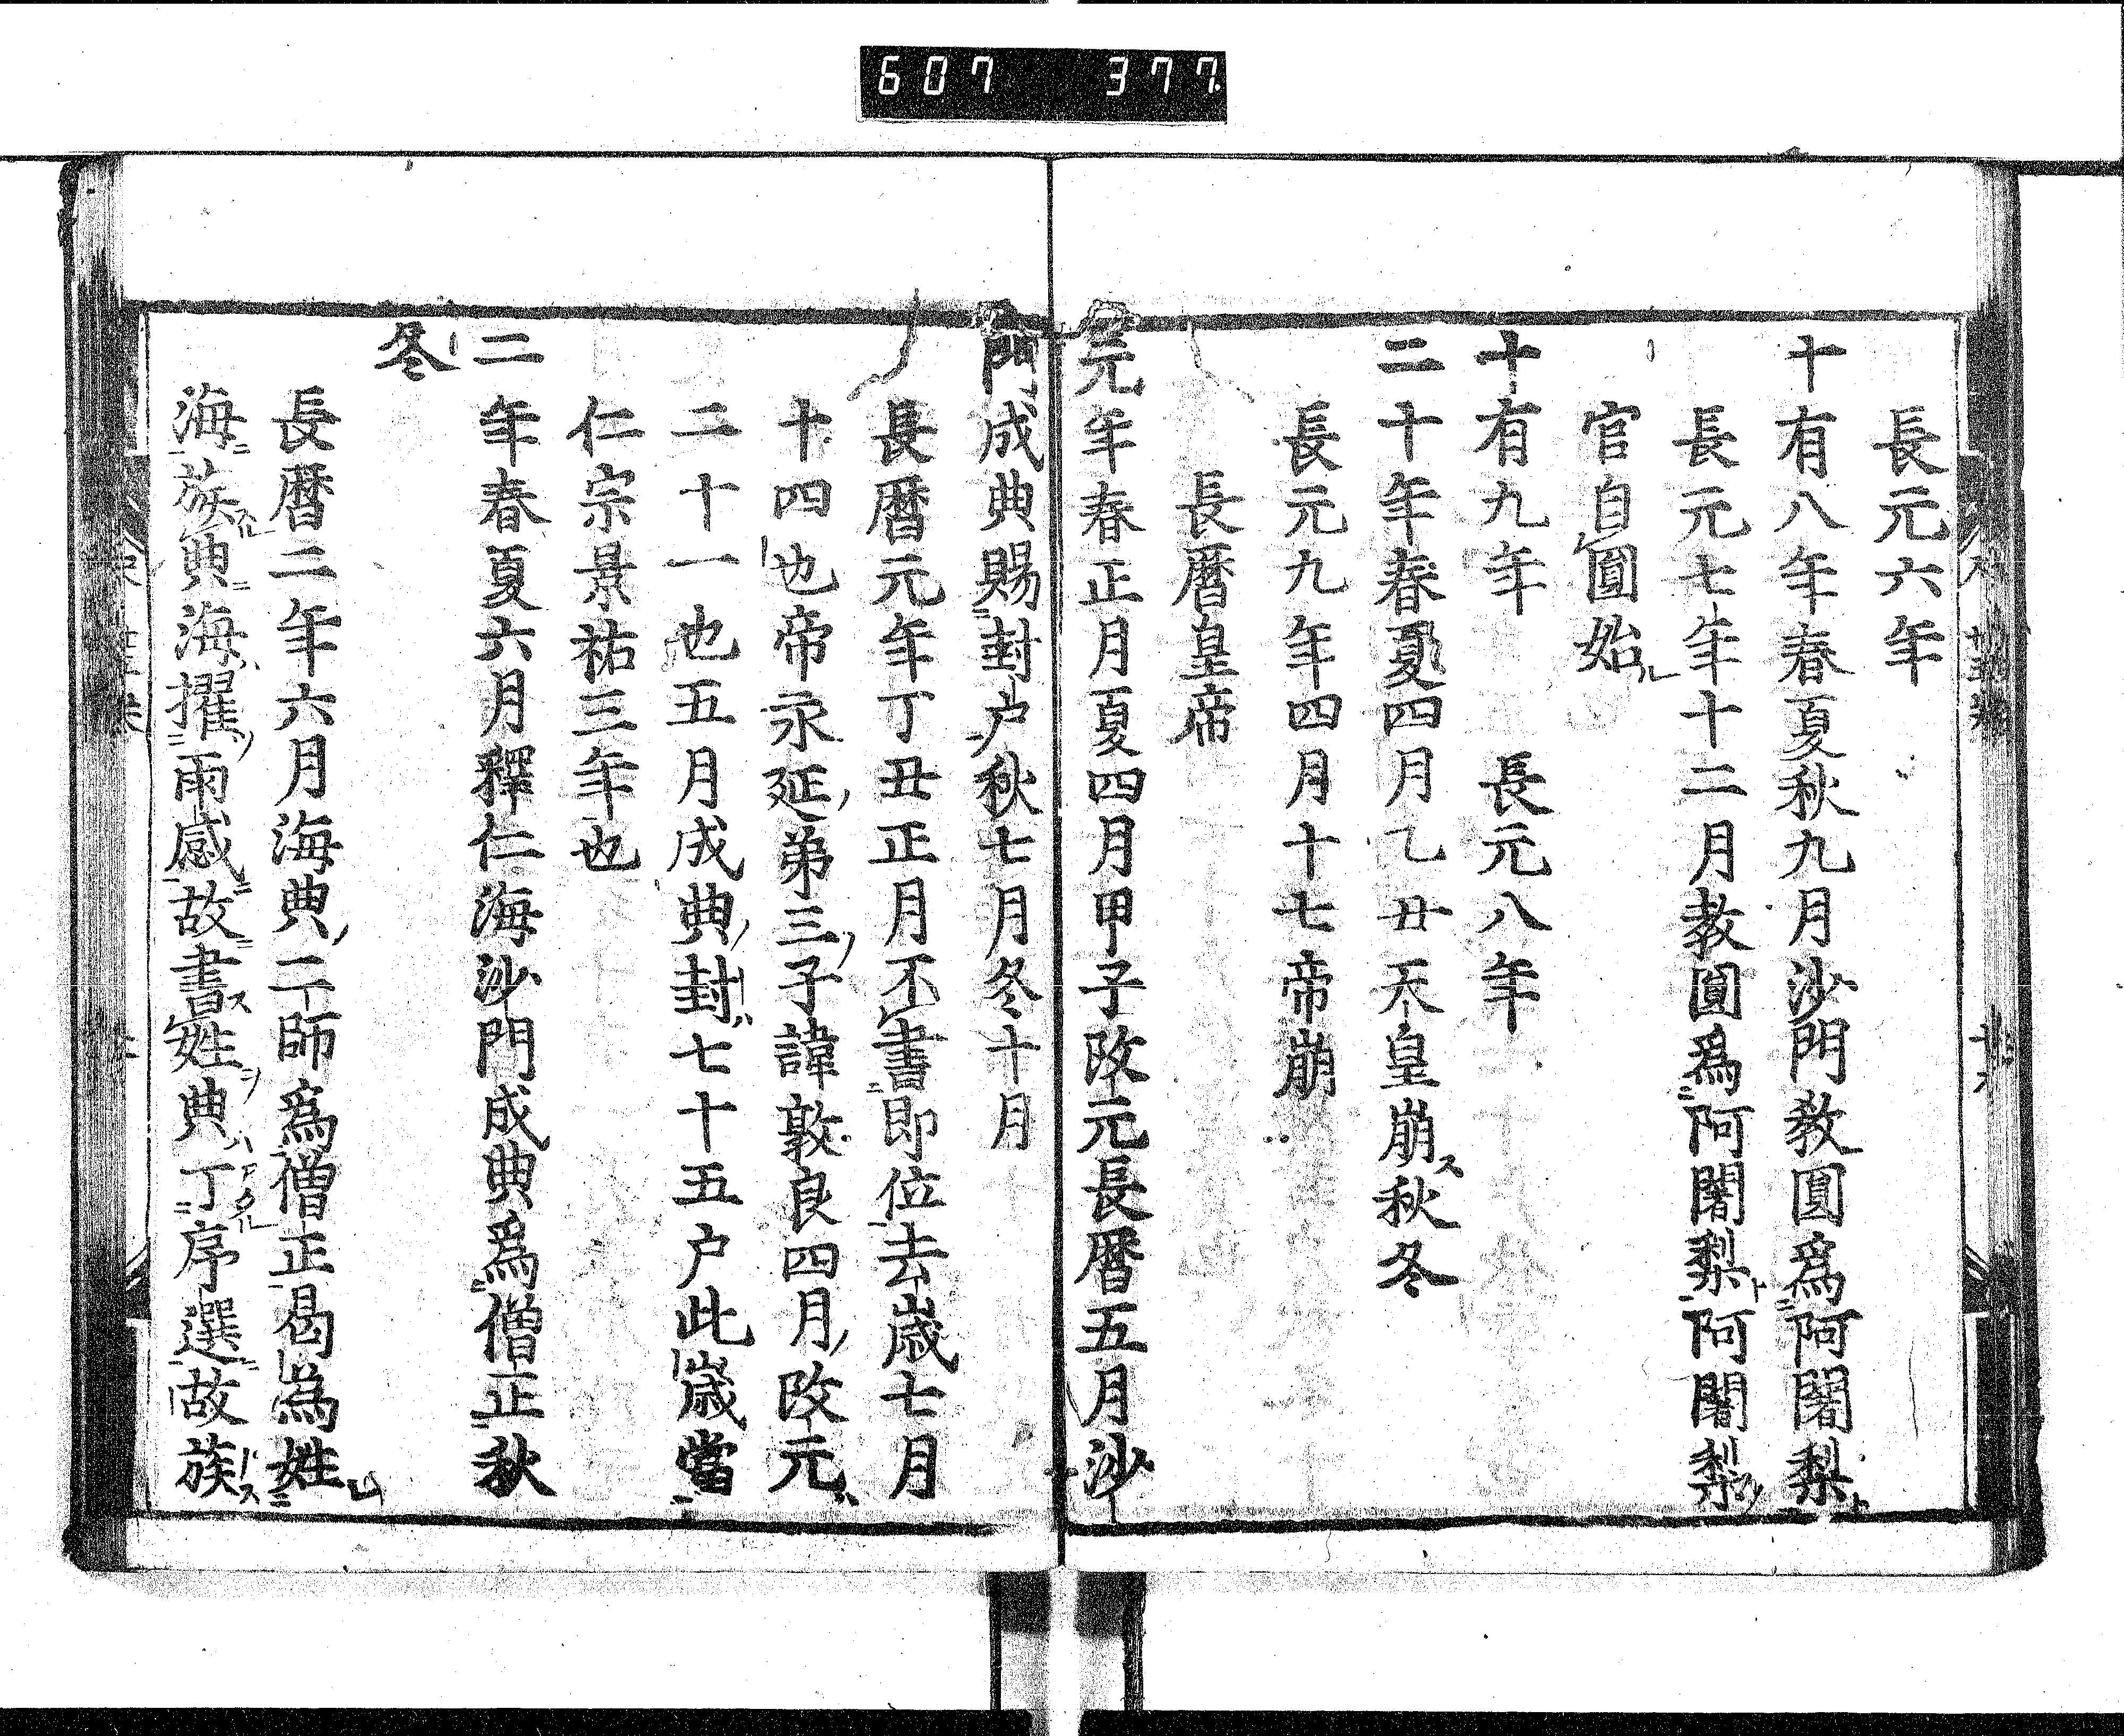 607 377
長元六年
十有八年春夏秋九月沙門教圓爲阿闍梨
長元七年十二月教圓爲阿闍梨阿闍梨
官自圓始
十有九年 長元八年
二十年春夏四月乙丑天皇崩秋冬
長元九年四月十七帝崩
長曆皇帝
元年春正月夏四月甲子改元長曆五月沙
門成典賜封户秋七月冬十月
長曆元年丁丑正月不書即位去歲七月
十四也帝永延弟三子諱敦良四月改元
二十一也五月成典封七十五户此歲當
仁宗景祐三年也
二年春夏六月釋仁海沙門成典爲僧正秋
冬
長曆二年六月海典二師爲僧正曷為姓
海族典海擢雨感故書姓典丁序選故族